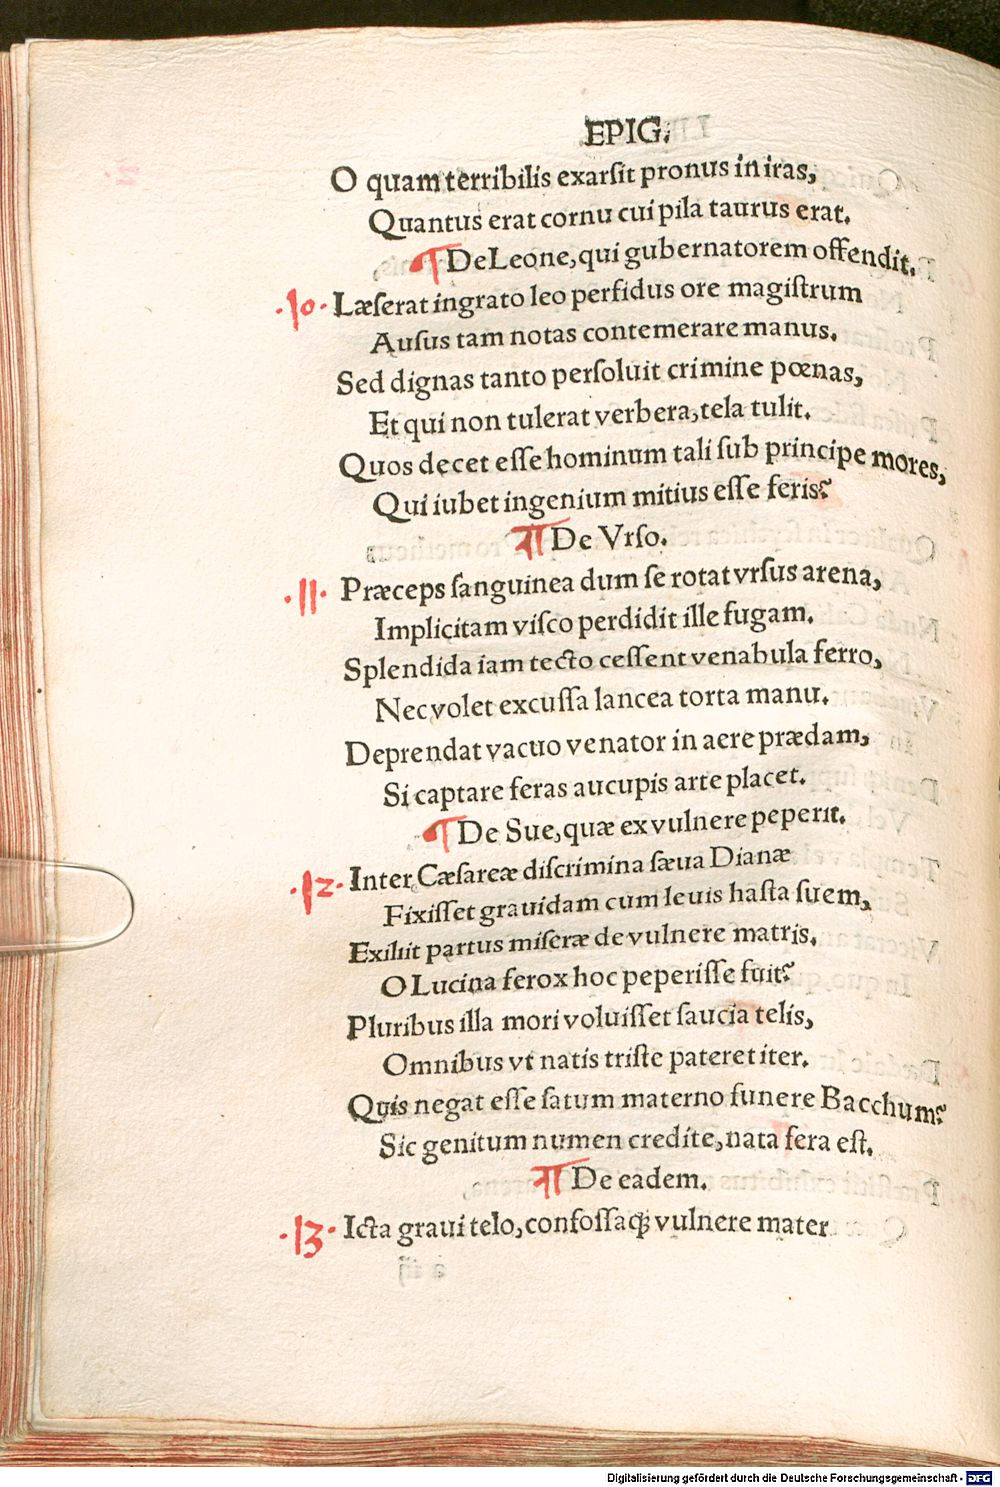 EPIG.
O quam terribilis exarsit pronus in iras,
Quantus erat cornu cui pila taurus erat.
¶ De Leone, qui gubernatorem offendit.
·10· Læserat ingrato leo perfidus ore magistrum
Ausus tam notas contemerare manus.
Sed dignas tanto persoluit crimine pœnas,
Et qui non tulerat verbera, tela tulit.
Quos decet esse hominum tali sub principe mores,
Qui iubet ingenium mitius esse feris?
¶ De Vrso.
·11· Præceps sanguinea dum se rotat vrsus arena,
Implicitam visco perdidit ille fugam.
Splendida iam tecto cessent venabula ferro,
Nec volet excussa lancea torta manu.
Deprendat vacuo venator in aere prædam,
Si captare feras aucupis arte placet.
¶ De Sue, quæ ex vulnere peperit.
·12· Inter Cæsareæ discrimina sæua Dianæ
Fixisset grauidam cum leuis hasta suem,
Exiliit partus miseræ de vulnere matris.
O Lucina ferox hoc peperisse fuit?
Pluribus illa mori voluisset saucia telis,
Omnibus vt natis triste pateret iter.
Quis negat esse satum materno funere Bacchum?
Sic genitum numen credite, nata fera est.
¶ De eadem.
·13· Icta graui telo, confossaq; vulnere mater
Digitalisierung gefördert durch die Deutsche Forschungsgemeinschaft - DFG